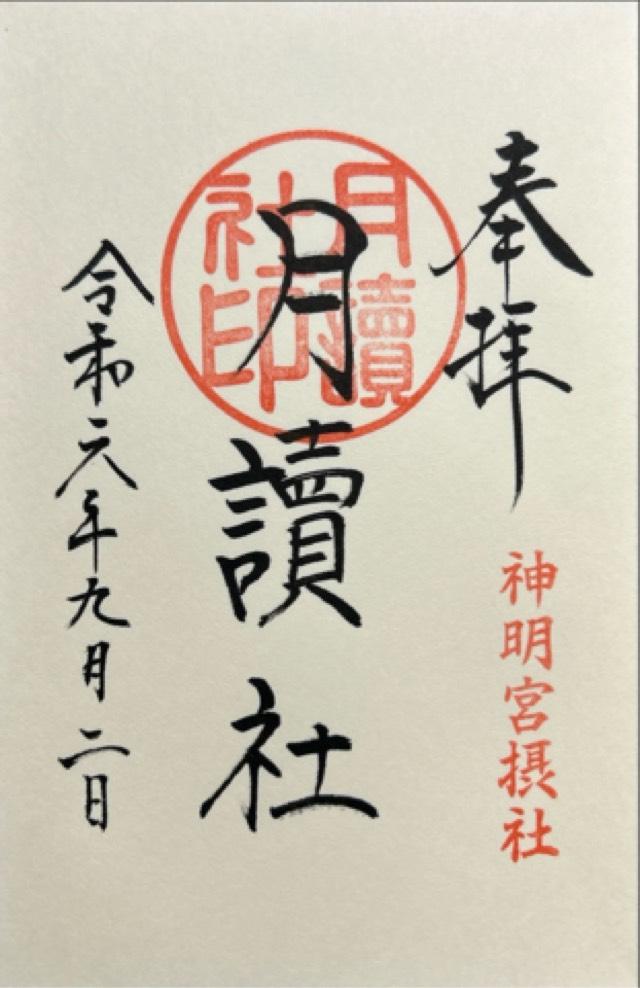 奉拝
神明宮摂社
月讀社印
月讀社
令和六年九月二日